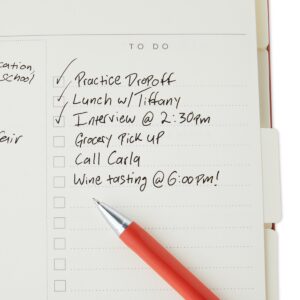 TO DO
cation,
school
Practice Dropoff
Lunch w/Tiffany
Interview @ 2:30pm
fair
Grocery Pick up
Call Carla
Wine tasting @ 6:00pm!